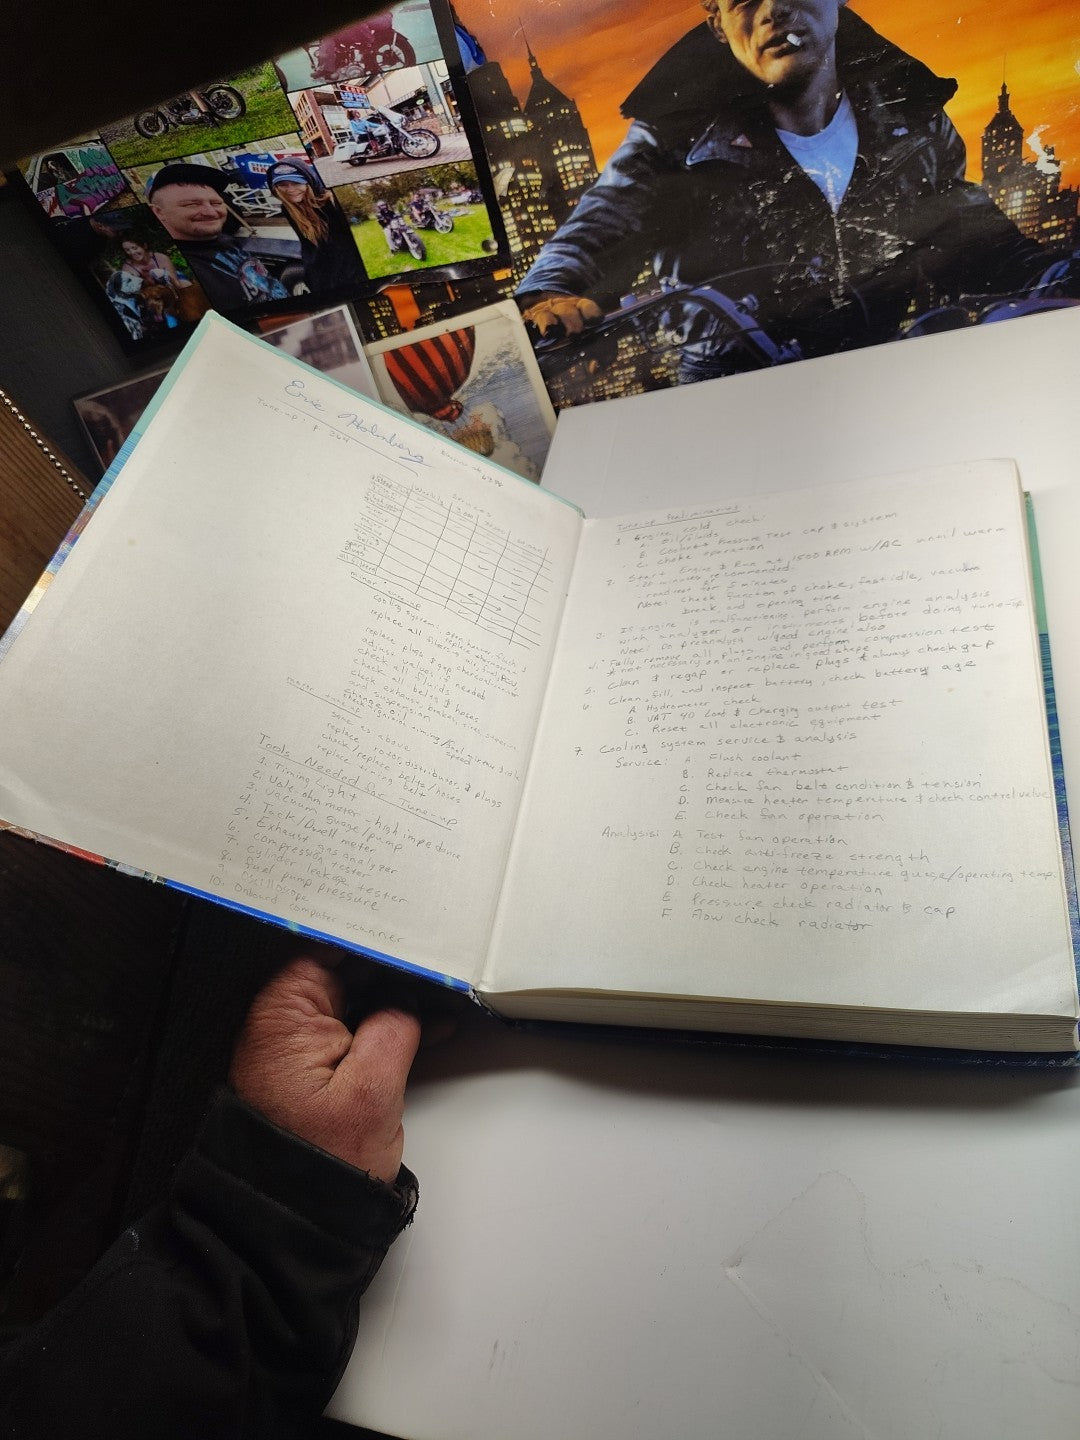 Eric Holmberg
Tune-up: p 364
Services
Weekly
spark
plugs
minor tune-up
cooling system
replace all filters
replace plugs & gap
adjust valves if needed
check all fluids
check all belts & hoses
check exhaust, brakes, tires, steering
and suspension
change oil
major tune-up
same as above
replace rotor, distributor, & plugs
check/replace belts/hoses
replace timing belt
Tools Needed for Tune-up
1. Timing light
2. Volt, ohm meter - high impedance
3. Vacuum guage/pump
4. Tack/Dwell meter
5. Exhaust gas analyzer
6. compression tester
7. Cylinder leakage tester
8. Fuel pump pressure
9. Oscilloscope
10. Onboard computer scanner
Tune-up Preliminaries:
1. Engine cold check:
A. Oil/fluids
B. Coolant & Pressure Test cap & system
C. choke operation
2. Start Engine & Run at 1500 RPM w/AC until warm
-20 minutes recommended.
- roadtest for 5 minutes
Note: Check function of choke, fast idle, vacuum
break, and opening time
3. If engine is malfunctioning, perform engine analysis
with analyzer or instruments, before doing tune-up
Note: Do preanalysis w/good engine also
4. Fully remove all plugs and perform compression test
* not necessary on an engine in good shape
5. Clean & regap or replace plugs * always check gap
6 Clean, fill, and inspect battery, check battery age
A Hydrometer check
B. VAT 40 Load & Charging output test
C. Reset all electronic equipment
7. Cooling system service & analysis
Service: A Flush coolant
B. Replace thermostat
C. Check fan belt condition & tension
D. Measure heater temperature & check control valve
E. Check fan operation
Analysis: A Test fan operation
B. Check anti-freeze strength
C. Check engine temperature guage/operating temp.
D. Check heater operation
E Pressure check radiator & cap
F. Flow check radiator